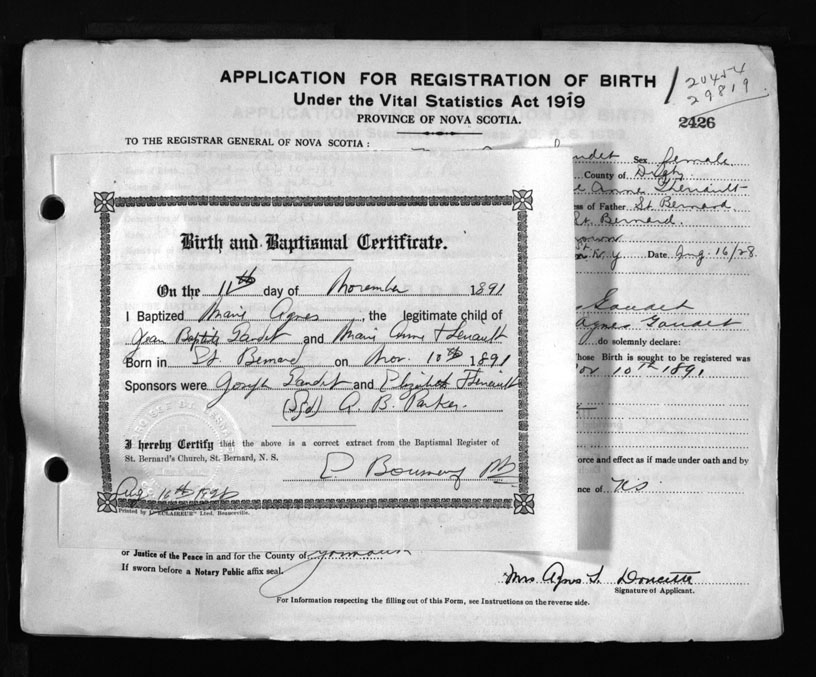 APPLICATION FOR REGISTRATION OF BIRTH
20454
29819
Under the Vital Statistics Act 1919
PROVINCE OF NOVA SCOTIA.
2426
TO THE REGISTRAR GENERAL OF NOVA SCOTIA:
udet Sex female
County of Digby
Anne Theriault
ss of Father St. Bernard
St. Bernard.
Date Aug. 16/28
Gaudet
Agnes Gaudet
do solemnly declare:
hose Birth is sought to be registered was
Nov 10th 1891
orce and effect as if made under oath and by
nce of N.S.
Birth and Baptismal Certificate.
On the 11th day of November 1891
I Baptized Marie Agnes, the legitimate child of
Jean Baptiste Gaudet and Marie Anne Theriault
Born in St. Bernard on Nov. 10th 1891
Sponsors were Joseph Gaudet and Elizabeth Theriault
(Sgd) A. B. Parker.
I hereby Certify that the above is a correct extract from the Baptismal Register of
St. Bernard's Church, St. Bernard, N. S.
Aug. 16th
Printed by L'"ECLAIREUR" Lted. Beauceville.
or Justice of the Peace in and for the County of Yarmouth
If sworn before a Notary Public affix seal.
Mrs Agnes Doucette
Signature of Applicant.
For Information respecting the filling out of this Form, see Instructions on the reverse side.